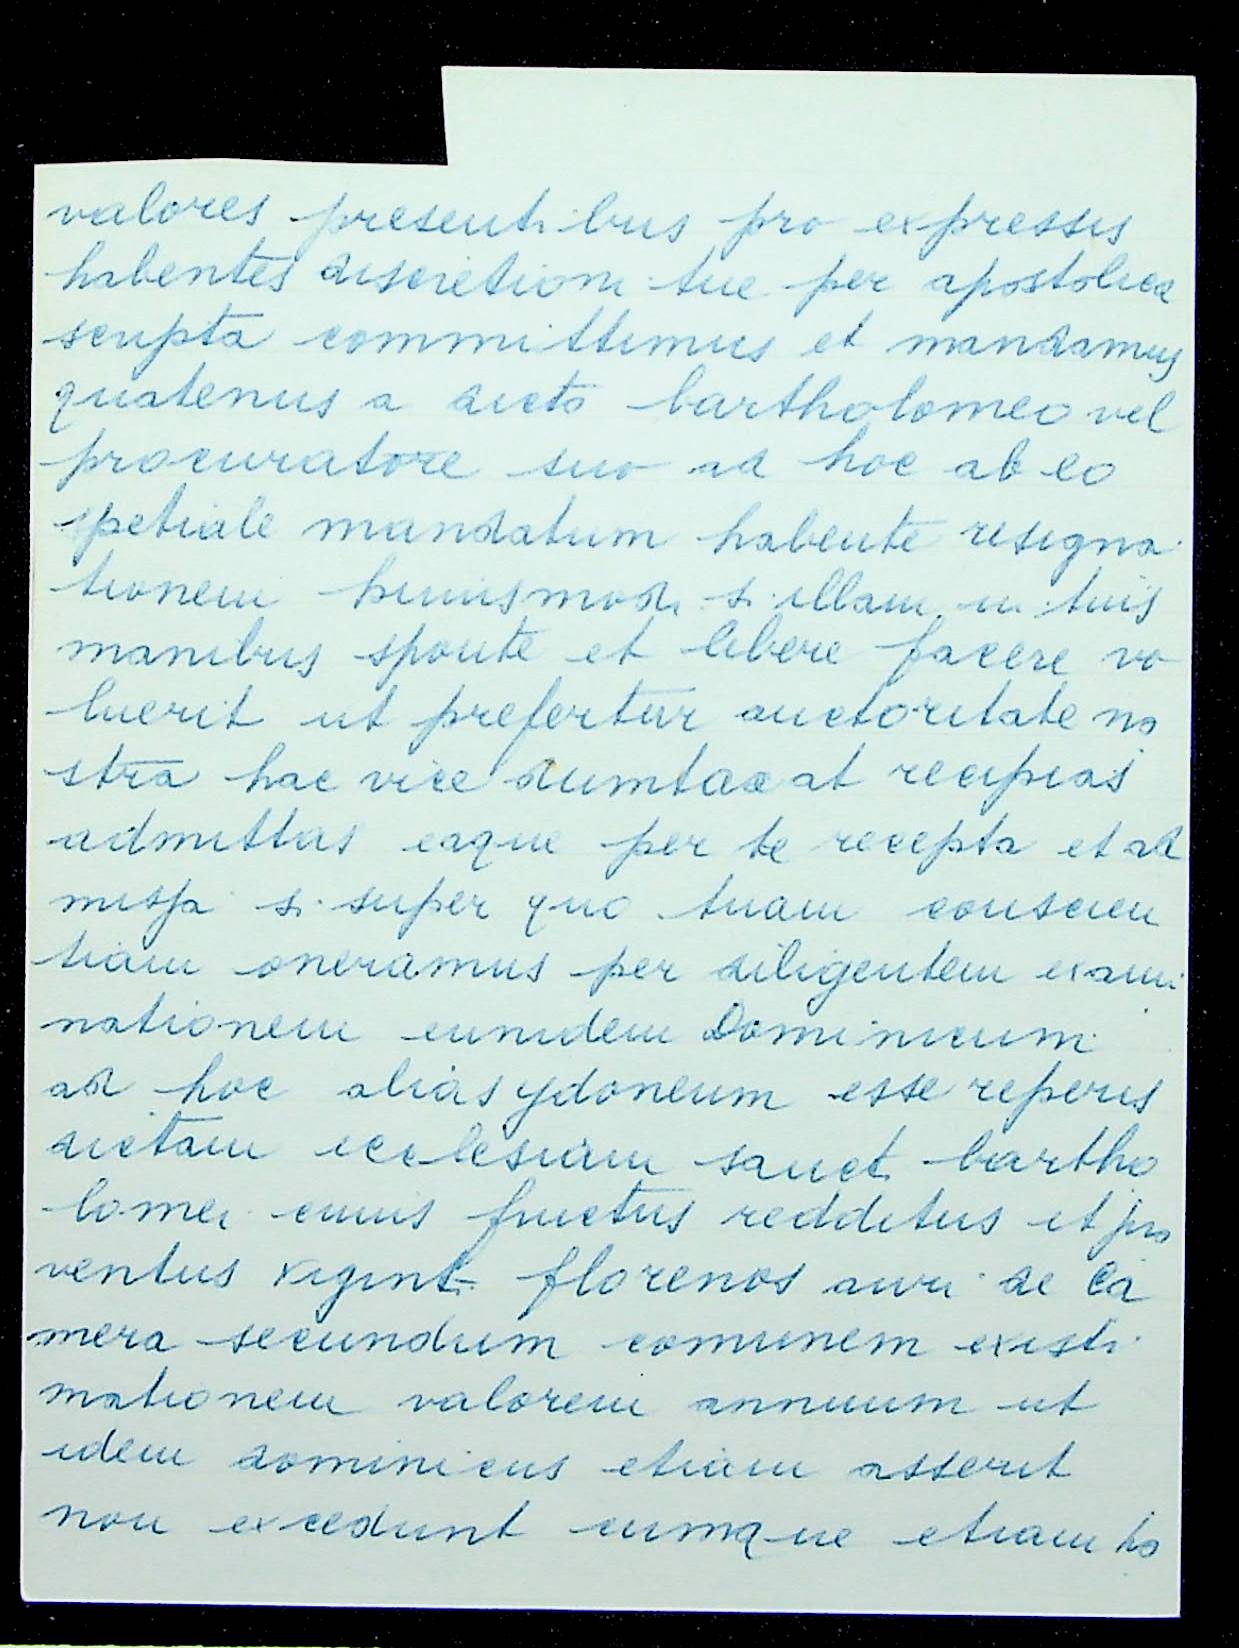 valores presentibus pro expressis
habentes discretioni tue per apostolica
scripta committimus et mandamus
quatenus a dicto bartholomeo vel
procuratore suo ad hoc ab eo
spetiale mandatum habente resigna
tionem huiusmodi si illam in tuis
manibus sponte et libere facere vo
luerit ut prefertur auctoritate no
stra hac vice dumtaxat recipias
admittas eaque per te recepta et ad
missa si super quo tuam conscien
tiam oneramus per diligentem exami
nationem eumdem Dominicum
ad hoc alias ydoneum esse reperis
dictam ecclesiam sancti bartho
lomei cuius fructus redditus et pro
ventus viginti florenos auri de Ca
mera secundum comunem existi
mationem valorem annuum ut
idem dominicus etiam asserit
non excedunt cumque etiam ho